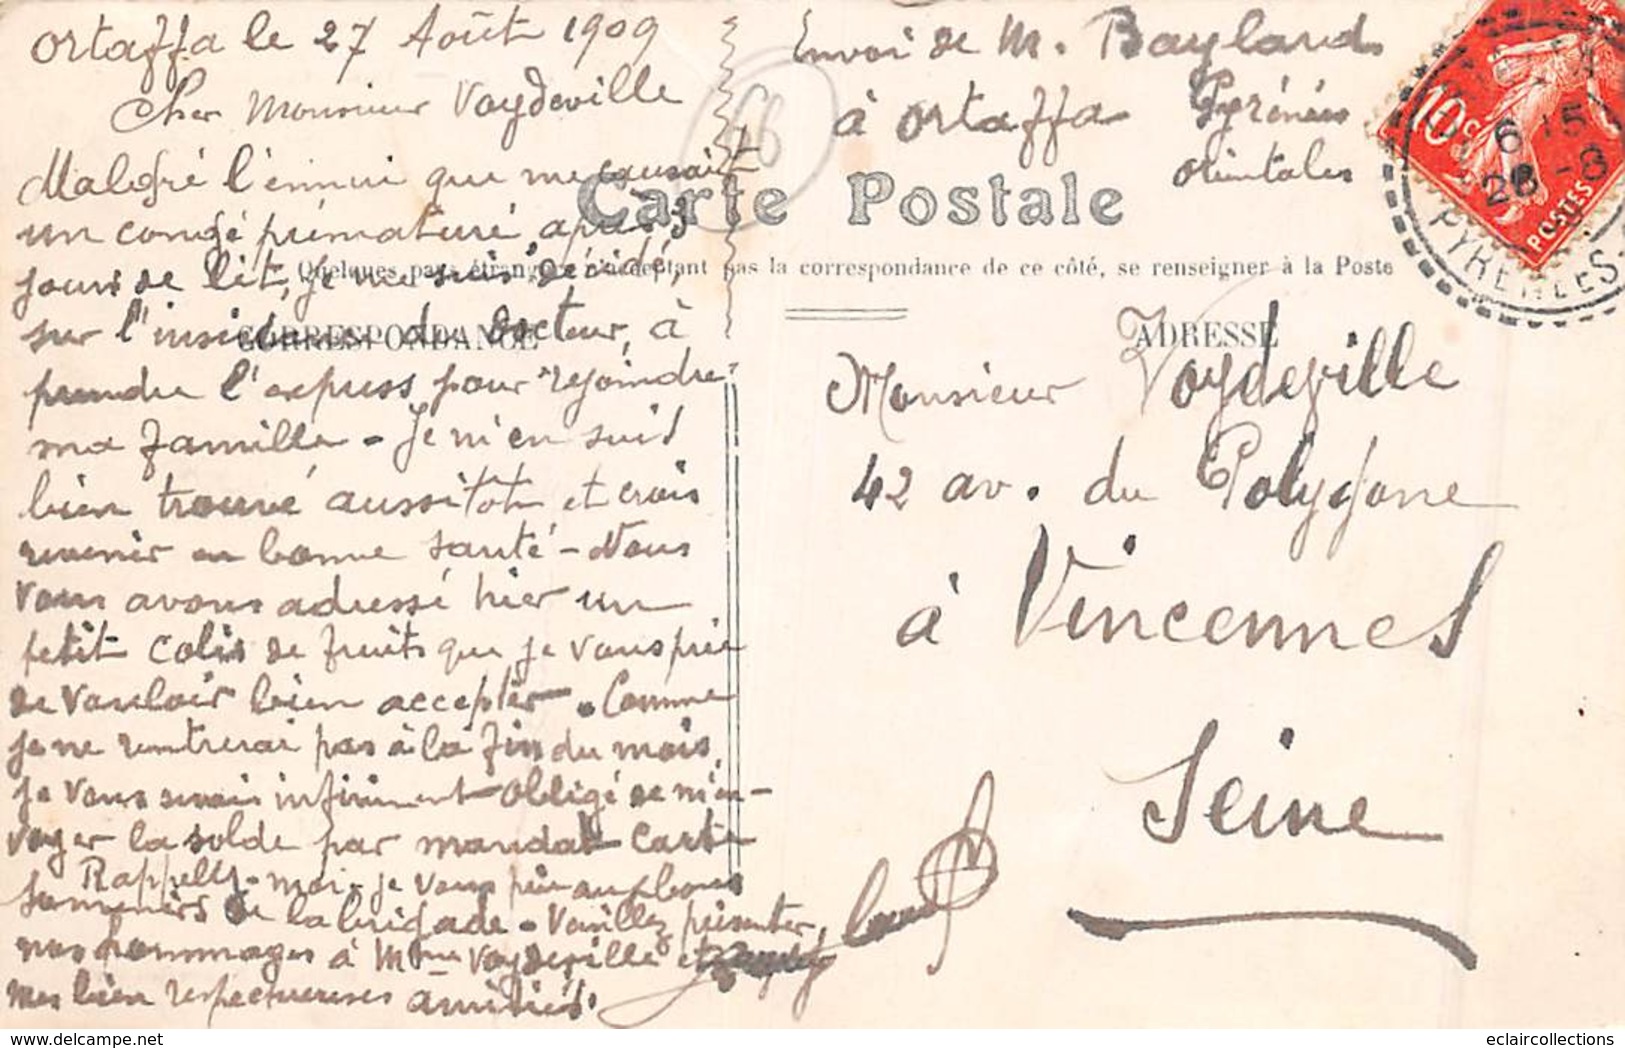 Ortaffa le 27 Août 1909
Cher Monsieur Voydeville
Malgré l'ennui que me causait
un congé prématuré, après 3
jours de lit, je me suis décidé,
sur l'insistance du docteur, à
prendre l'express pour rejoindre
ma famille - Je m'en suis
bien trouvé aussitôt et crois
revenir en bonne santé - Nous
vous avons adressé hier un
petit colis de fruits que je vous prie
de vouloir bien accepter. Comme
je ne rentrerai pas à la fin du mois
je vous serais infiniment obligé de m'en-
voyer la solde par mandat carte
Rappelez-moi je vous prie aux bons
souvenirs de la brigade - Veuillez présenter,
nos hommages à Mme Voydeville et
mes bien respectueuses amitiés.
Envoi de M. Baylard
à Ortaffa Pyrénées
Orientales
Carte Postale
Quelques pays étrangers n'acceptant pas la correspondance de ce côté, se renseigner à la Poste
CORRESPONDANCE
ADRESSE
Monsieur Voydeville
42 av. du Polygone
à Vincennes
Seine
10c
POSTES
6 15
28 -8
PYRENEES
www.delcampe.net
eclaircollections